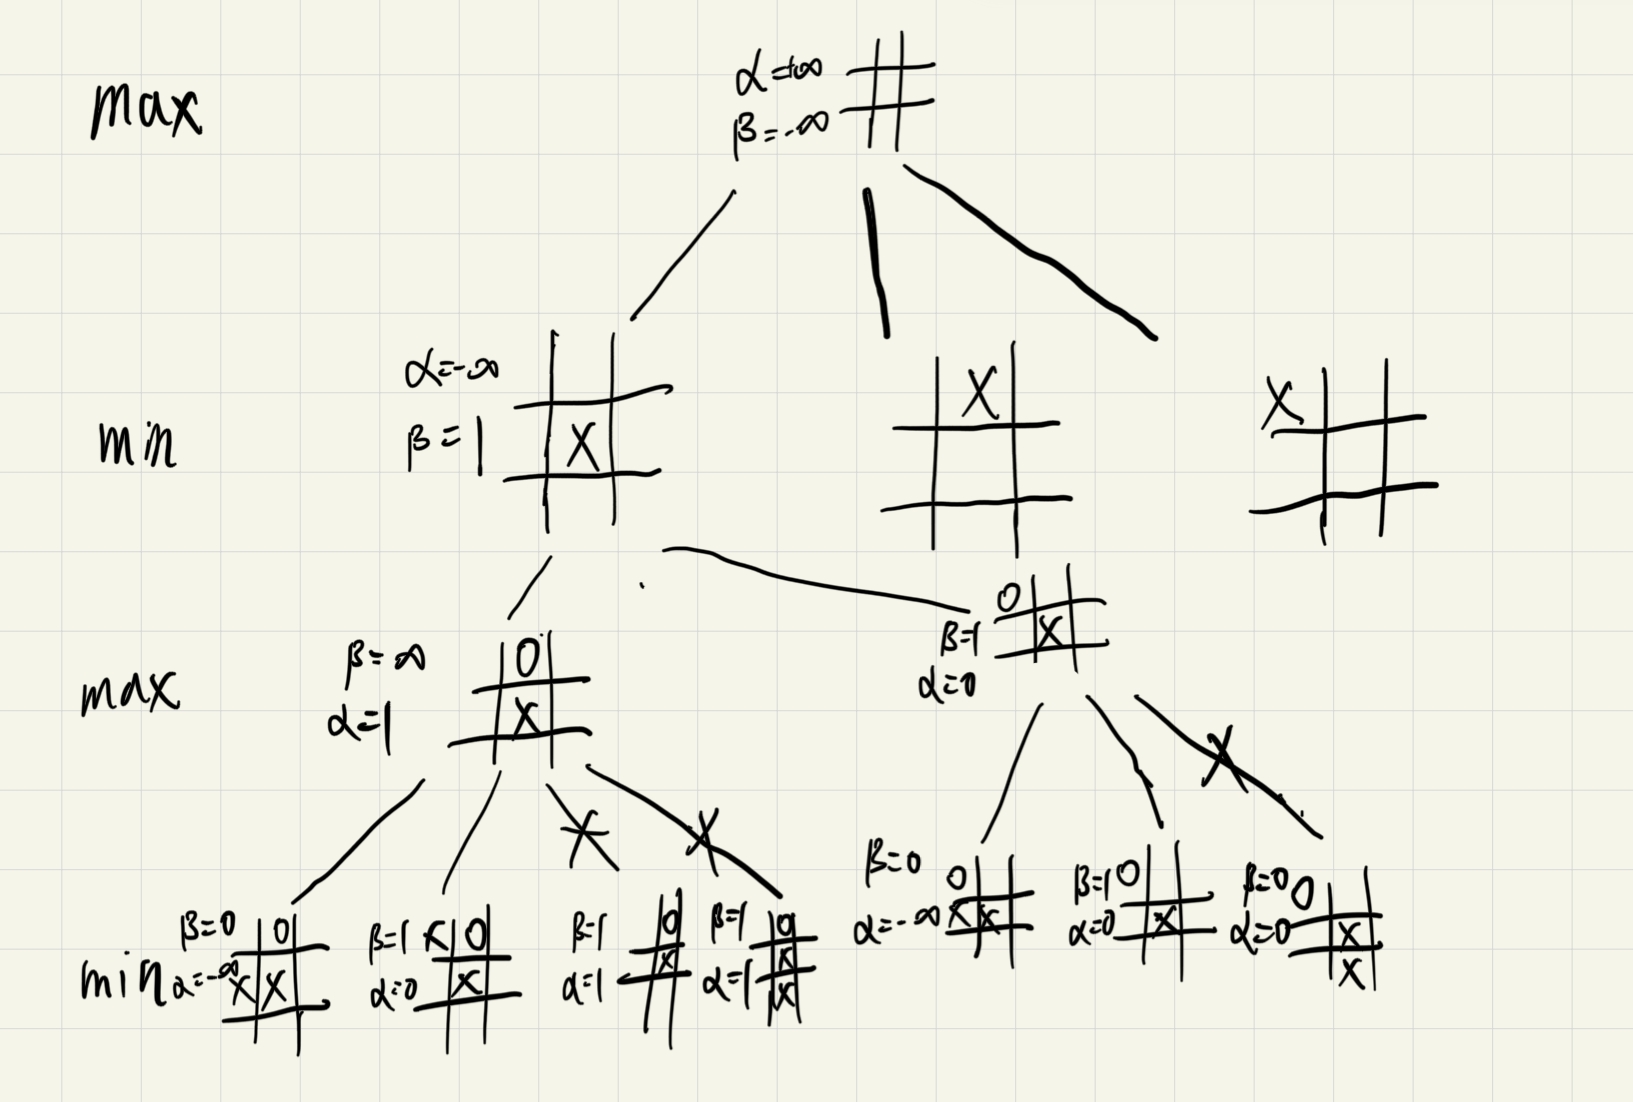 max
α=+∞
β=-∞
min
α=-∞
β=1
X
X
X
max
β=∞
α=1
O
X
O
X
β=1
α=0
min
β=0
α=-∞
O
X X
β=1
α=0
X O
X
β=1
α=1
O
X
β=1
α=1
O
X
X
β=0
α=-∞
O
X X
β=1
α=0
O
X
β=0
α=0
O
X
X